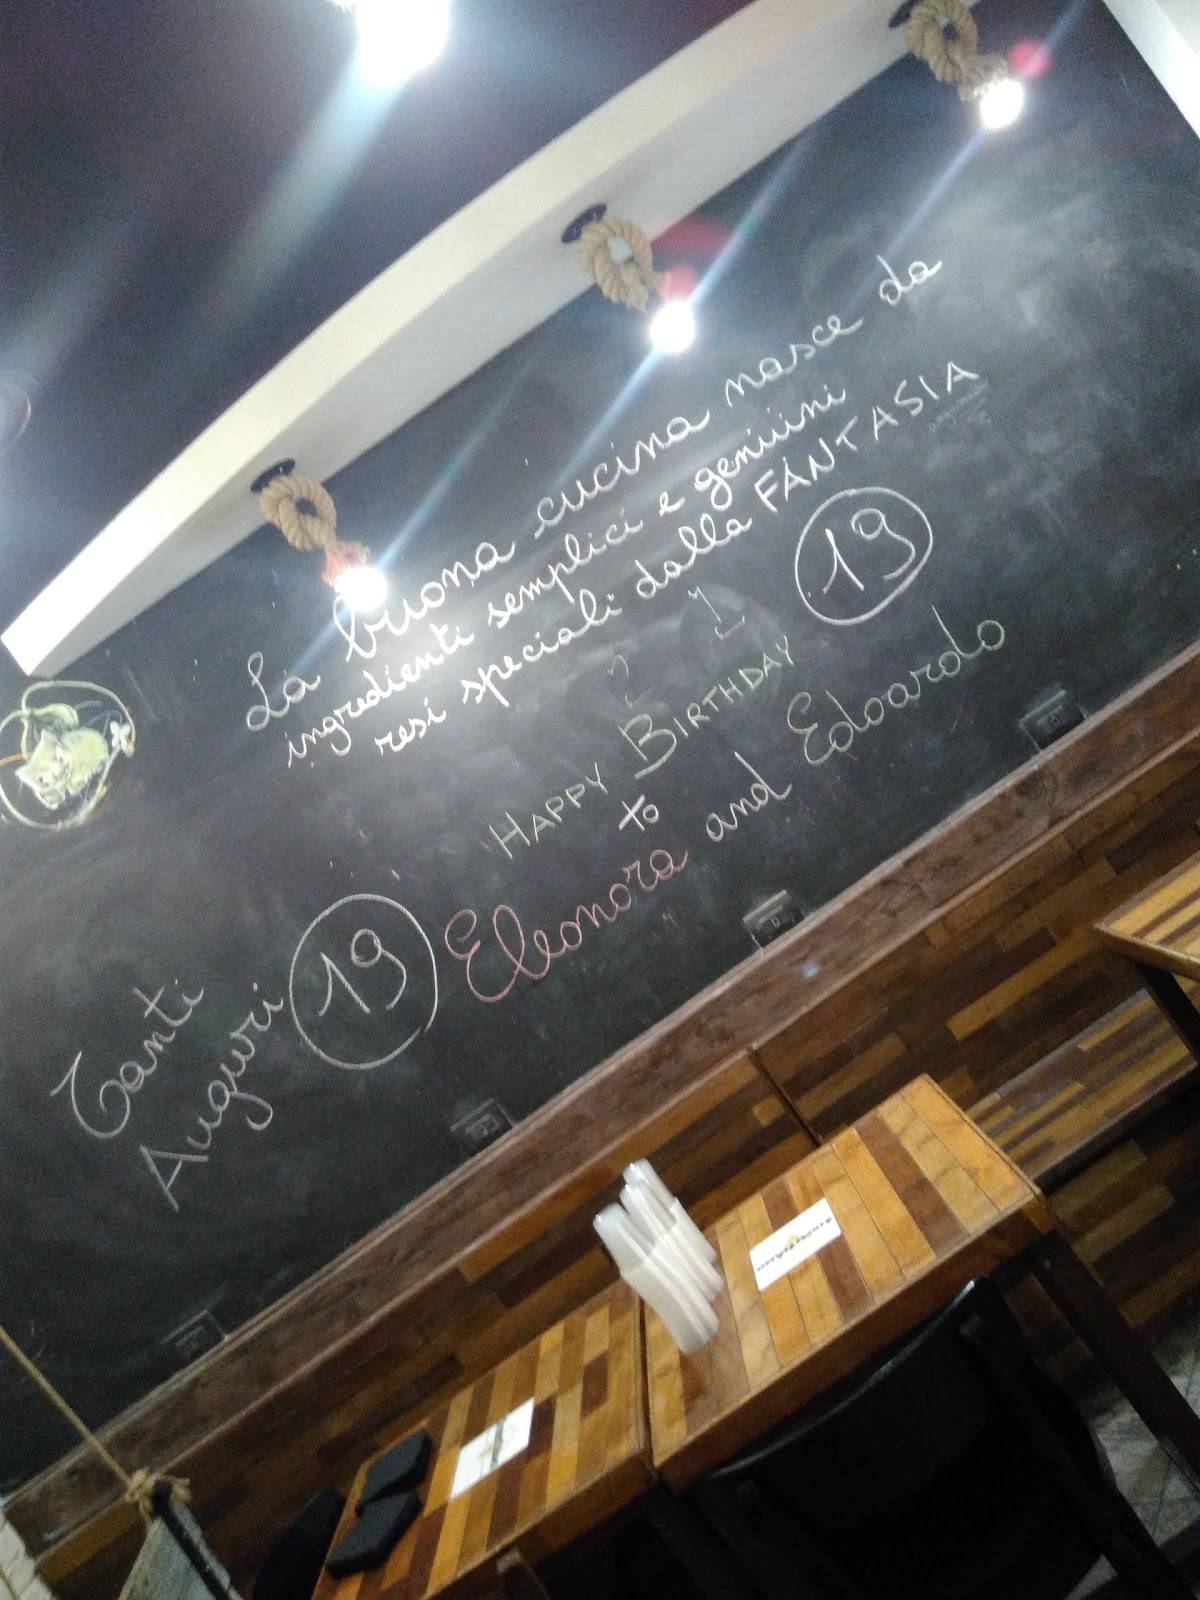 La buona cucina nasce da
ingredienti semplici e genuini
resi speciali dalla FANTASIA
19
HAPPY BIRTHDAY
to
Eleonora and Edoardo
Tanti
Auguri
19